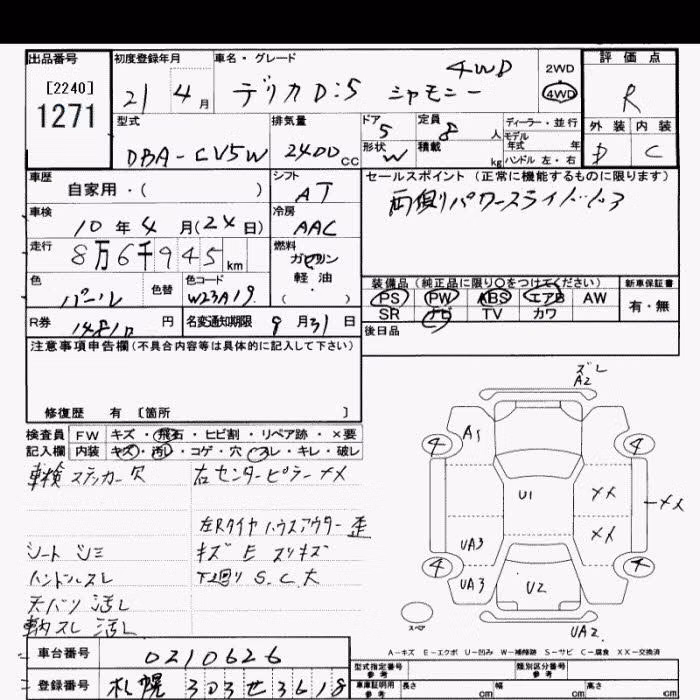 出品番号 初度登録年月 車名・グレード 評価点
[2240]
1271
21 4月 デリカD:5 シャモニー 4WD 2WD 4WD R
型式 排気量 ドア 定員 ディーラー・並行 外装 内装
DBA-CV5W 2400cc 5 8人 モデル年式 年 D C
形状 W 積載 kg ハンドル 左・右
車歴 シフト セールスポイント (正常に機能するものに限ります)
自家用・( ) AT 両側パワースライドドア
車検 冷房
10年4月(24日) AAC
走行 燃料
8万6千945km ガソリン
色 色替 色コード 軽油
パール W23A19 ・( )
装備品(純正品に限り○をつけてください) 新車保証書
PS PW ABS エアB AW 有・無
SR ナビ TV カワ
R券 円 名変通知期限 9月31日 後日品
注意事項申告欄(不具合内容等は具体的に記入して下さい)
修復歴 有 [箇所 ]
ズレ
A2
検査員 FW キズ・飛石・ヒビ割・リペア跡・×要
記入欄 内装 キズ・汚レ・コゲ・穴・スレ・キレ・破レ
車検ステッカー欠 右センターピラーメメ
左Rタイヤハウスアウター歪
シートシミ キズ E スリキズ
ハンドルスレ 下廻り S.C大
天バリ汚レ
車内スレ 汚レ
4 A1 4
U1 メメ メメ
UA3 メメ
4 UA3 U2 4
スペア UA2
A-キズ E-エクボ U-凹み W-補修跡 S-サビ C-腐食 XX-交換済
車台番号 0210626 型式指定番号 参考 類別区分番号 参考
登録番号 札幌 303 せ 3618 車庫証明用 参考 長さ cm 幅 cm 高さ cm